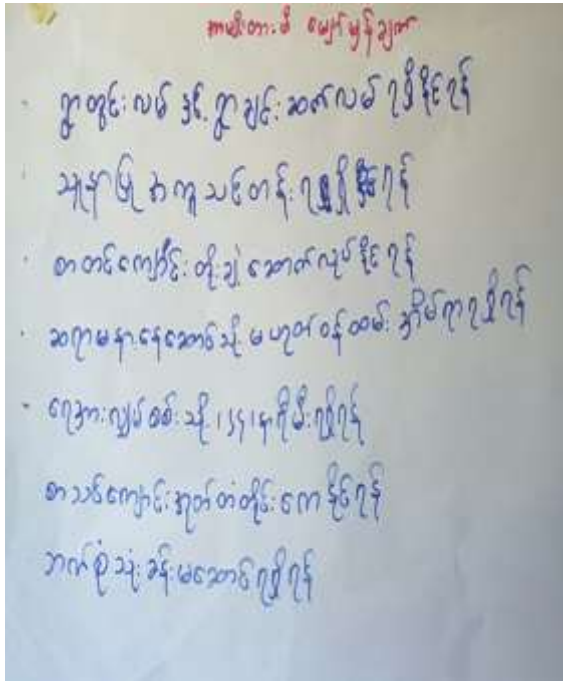 ကာမီးတားမီ မျှော်မှန်ချက်
- ရွာတွင်းလမ်း နှင့် ရွာချင်းဆက်လမ်း ရရှိနိုင်ရန်
သူနာပြု အကူသင်တန်း ရရှိနိုင်ရန်
- စာသင်ကျောင်း တိုးချဲ့ ဆောက်လုပ်နိုင်ရန်
- ဆရာမနားနေဆောင်သို့မဟုတ်ဝန်ထမ်းအိမ်ရာရရှိရန်
- ရေအားလျှပ်စစ်သို့ ၂၄ နာရီမီးရရှိရန်
စာသင်ကျောင်းအုတ်တံတိုင်းကာနိုင်ရန်
ဘက်စုံသုံးခန်းမဆောင်ရရှိရန်